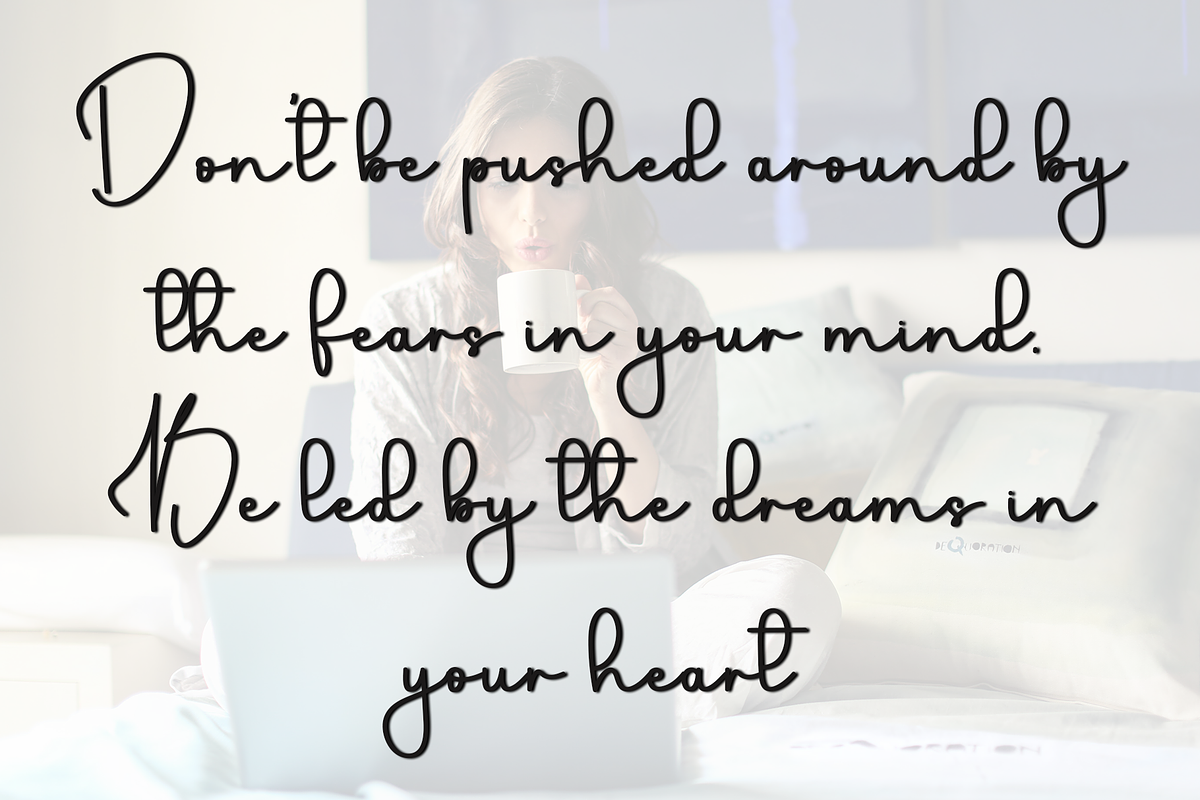 Don't be pushed around by
the fears in your mind.
Be led by the dreams in
your heart